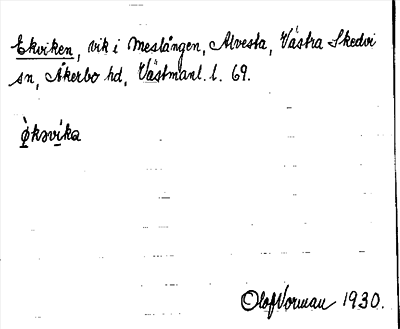 Ekviken, vik i Meslången, Alvesta, Västra Skedvi
sn, Åkerbo hd, Västmanl. l. 69.
ò̩kəvi̩ka
Olof Vorman 1930.